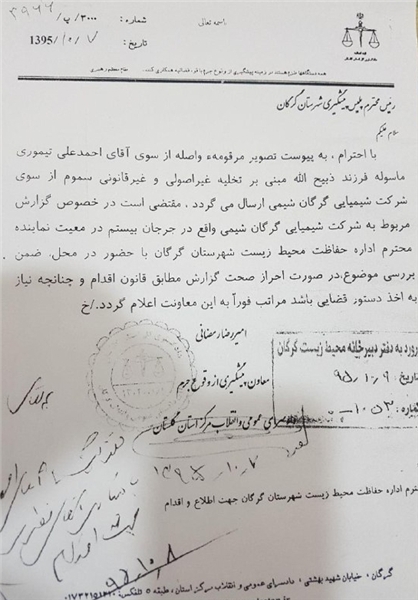 باسمه تعالی
شماره : ۳۰۰۰/پ/
تاریخ: ۷/۱۰/1395
رئیس محترم پلیس پیشگیری شهرستان گرگان
سلام علیکم
با احترام ، به پیوست تصویر مرقومهء واصله از سوی آقای احمدعلی تیموری
ماسوله فرزند ذبیح الله مبنی بر تخلیه غیراصولی و غیرقانونی سموم از سوی
شرکت شیمیایی گرگان شیمی ارسال می گردد . مقتضی است در خصوص گزارش
مربوط به شرکت شیمیایی گرگان شیمی واقع در جرجان بیستم در معیت نماینده
محترم اداره حفاظت محیط زیست شهرستان گرگان با حضور در محل، ضمن
بررسی موضوع،در صورت احراز صحت گزارش مطابق قانون اقدام و چنانچه نیاز
به اخذ دستور قضایی باشد مراتب فوراً به این معاونت اعلام گردد./خ
امیررضا رمضانی
معاون پیشگیری از وقوع جرم
عمومی و انقلاب مرکز استان گلستان
ورود به دفتر دبیرخانه محیط زیست گرگان
تاریخ
محترم اداره حفاظت محیط زیست شهرستان گرگان جهت اطلاع و اقدام
گرگان ، خیابان شهید بهشتی ، دادسرای عمومی و انقلاب مرکز استان، طبقه ۵